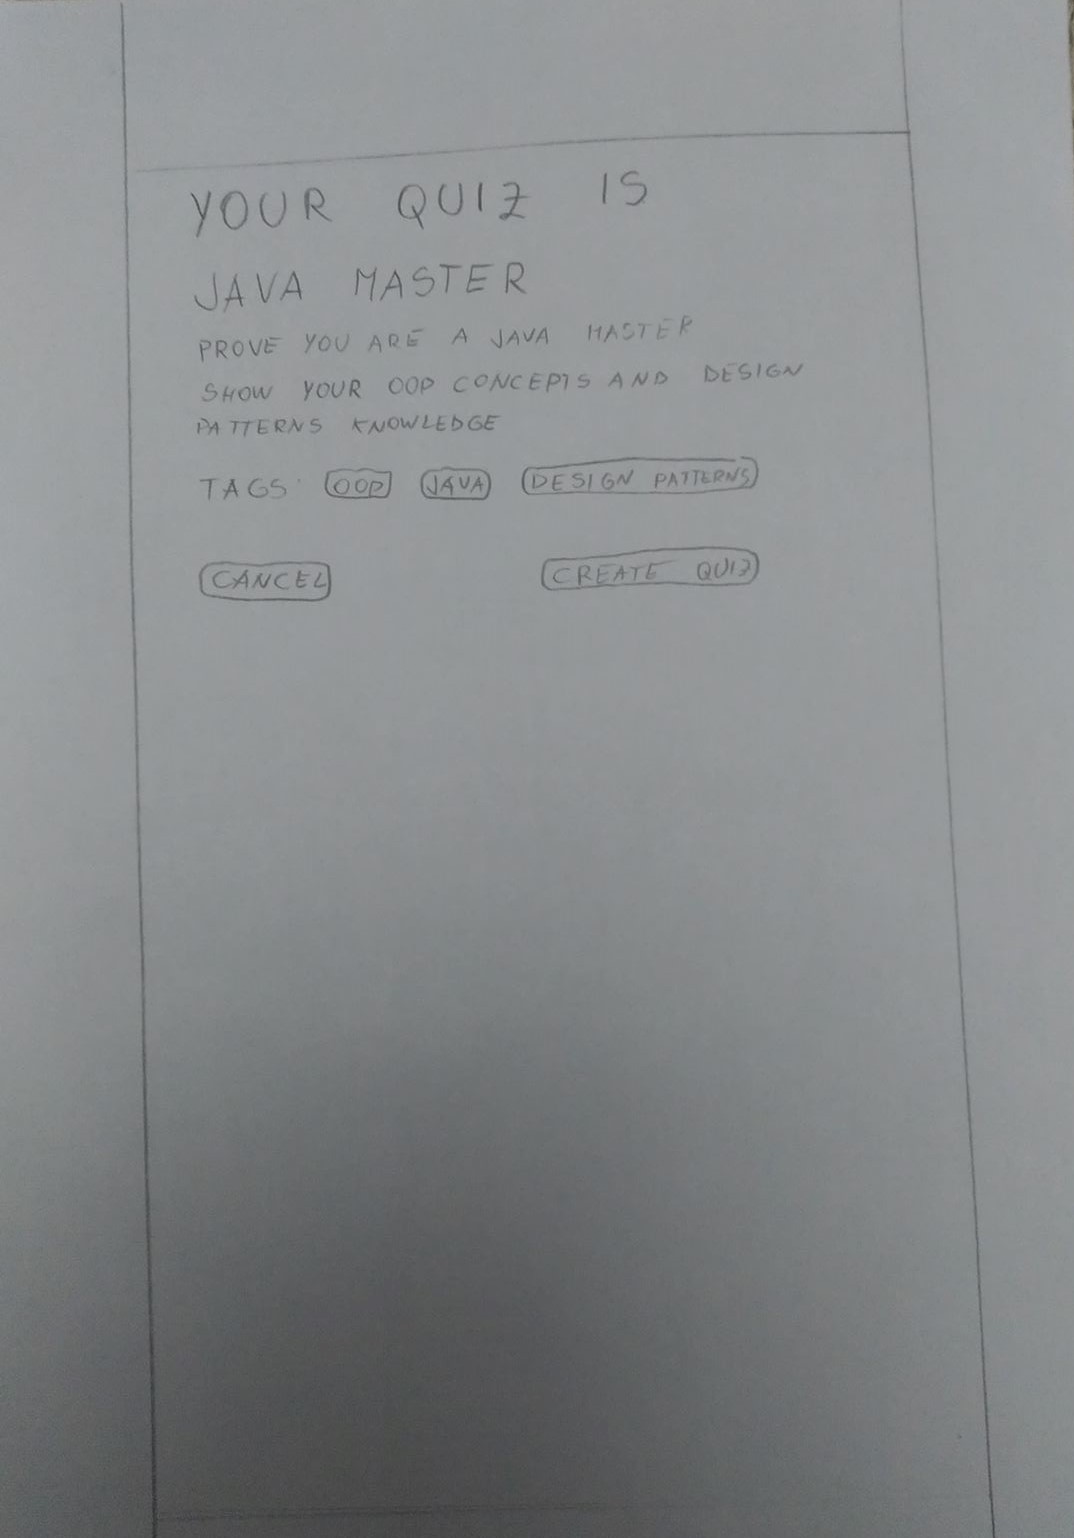 YOUR QUIZ IS
JAVA MASTER
PROVE YOU ARE A JAVA MASTER
SHOW YOUR OOP CONCEPTS AND DESIGN
PATTERNS KNOWLEDGE
TAGS OOP JAVA DESIGN PATTERNS
CANCEL CREATE QUIZ